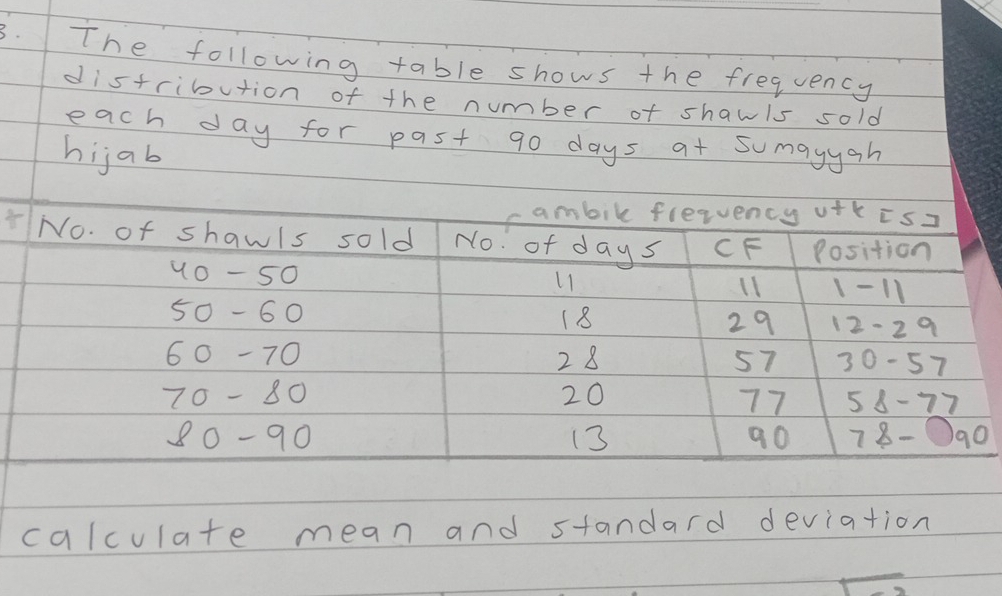 3. The following table shows the frequency
distribution of the number of shawls sold
each day for past 90 days at Sumayyah
hijab
ambik frequency utk [S]
No. of shawls sold No. of days CF Position
40 - 50 11 11 1-11
50 - 60 18 29 12-29
60 - 70 28 57 30-57
70 - 80 20 77 58-77
80 - 90 13 90 78-90
calculate mean and standard deviation